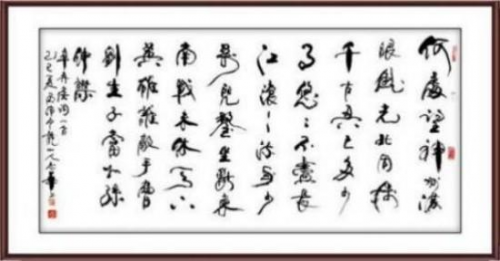 何處望神州滿
眼風光北固樓
千古興亡多少
事悠々不盡長
江滚々流年少
萬兜鍪坐斷東
南戰未休天下
英雄誰敵手曹
劉生子當如孫
仲謀
辛弃疾詞一首